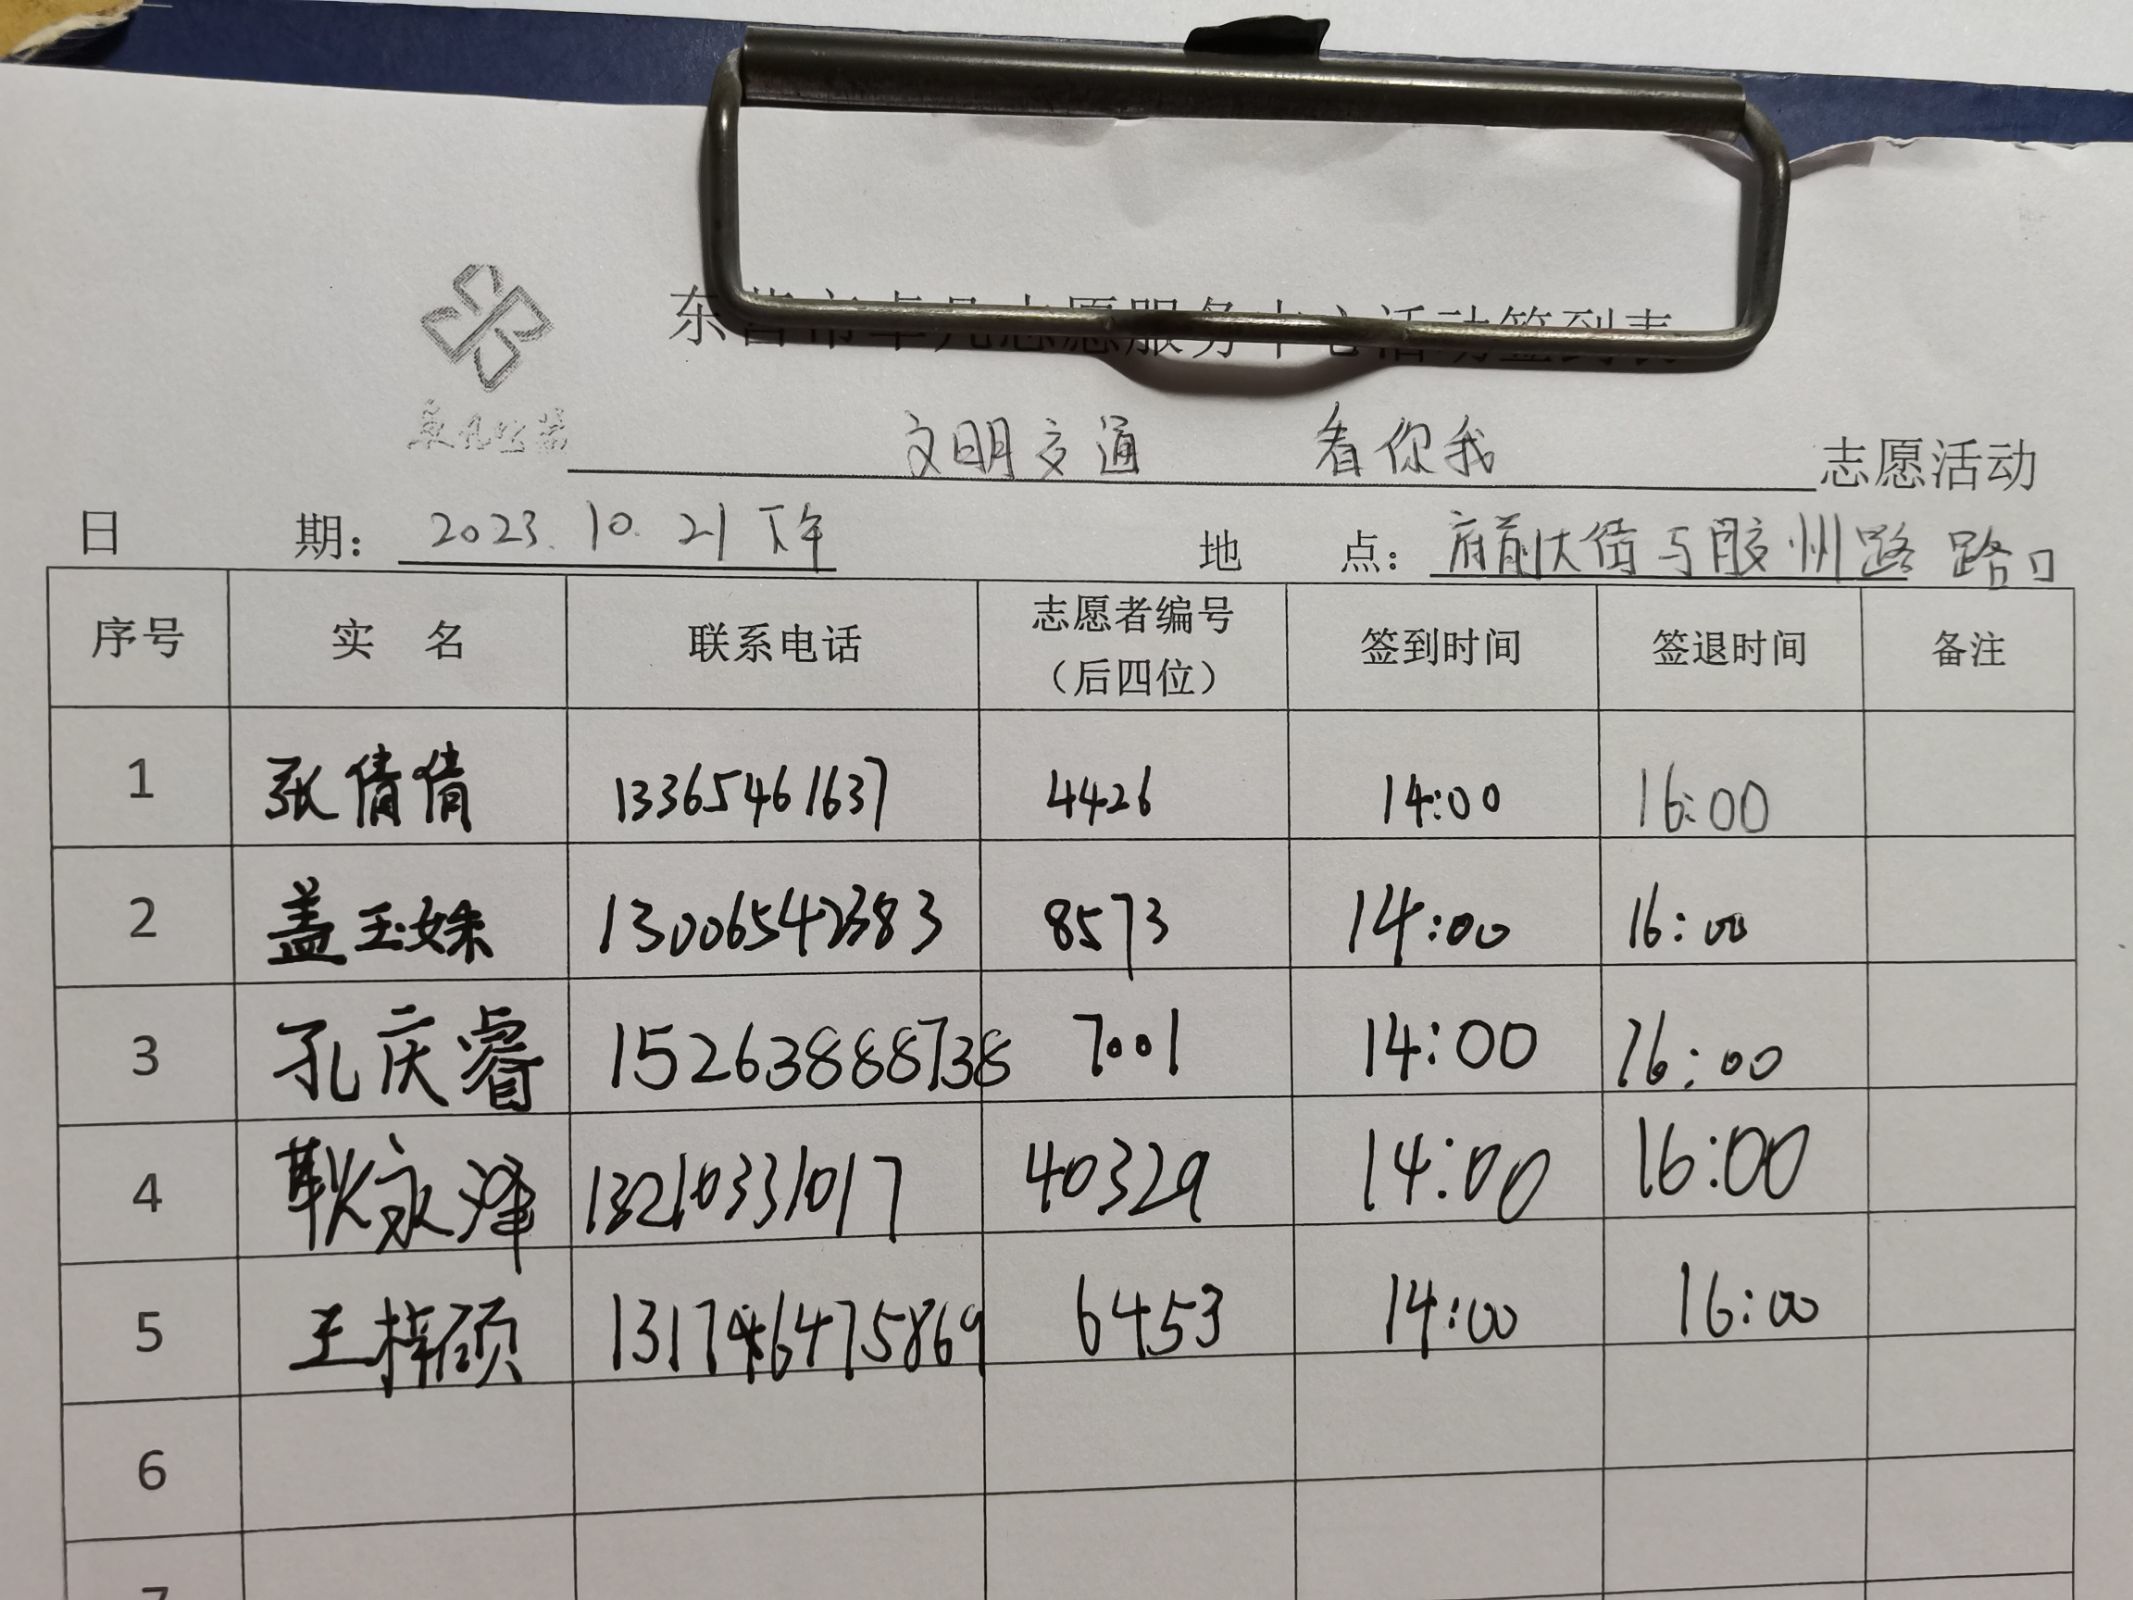 东营市卓凡志愿服务中心活动签到表
卓凡公益
文明交通 看你我 志愿活动
日 期: 2023.10.21下午 地 点: 府前大街与胶州路 路口
序号 实 名 联系电话 志愿者编号（后四位） 签到时间 签退时间 备注
1 张倩倩 13365461637 4426 14:00 16:00
2 盖玉姝 13006542383 8573 14:00 16:00
3 孔庆睿 15263888738 7001 14:00 16:00
4 耿永泽 13210331017 40329 14:00 16:00
5 王梓硕 6453 14:00 16:00
6
7